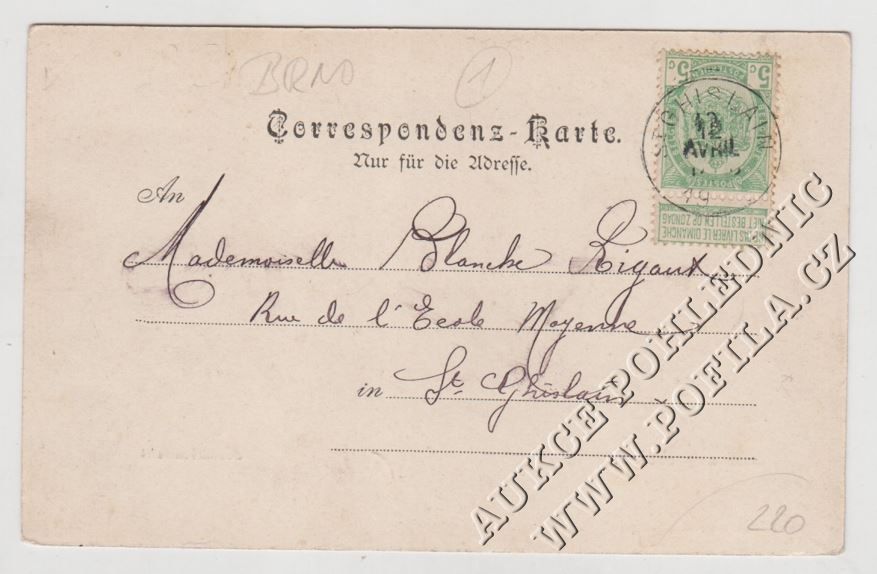 BRNO
1
Correspondenz-Karte.
Nur für die Adresse.
An
Mademoiselle Blanche Rigaux
Rue de l'Ecole Moyenne
in St. Ghislain
5 c 5 c
POSTES
NE PAS LIVRER LE DIMANCHE
NIET BESTELLEN OP ZONDAG
ST GHISLAIN
12
AVRIL
19
220
AUKCE POHLEDNIC
WWW.POFILA.CZ